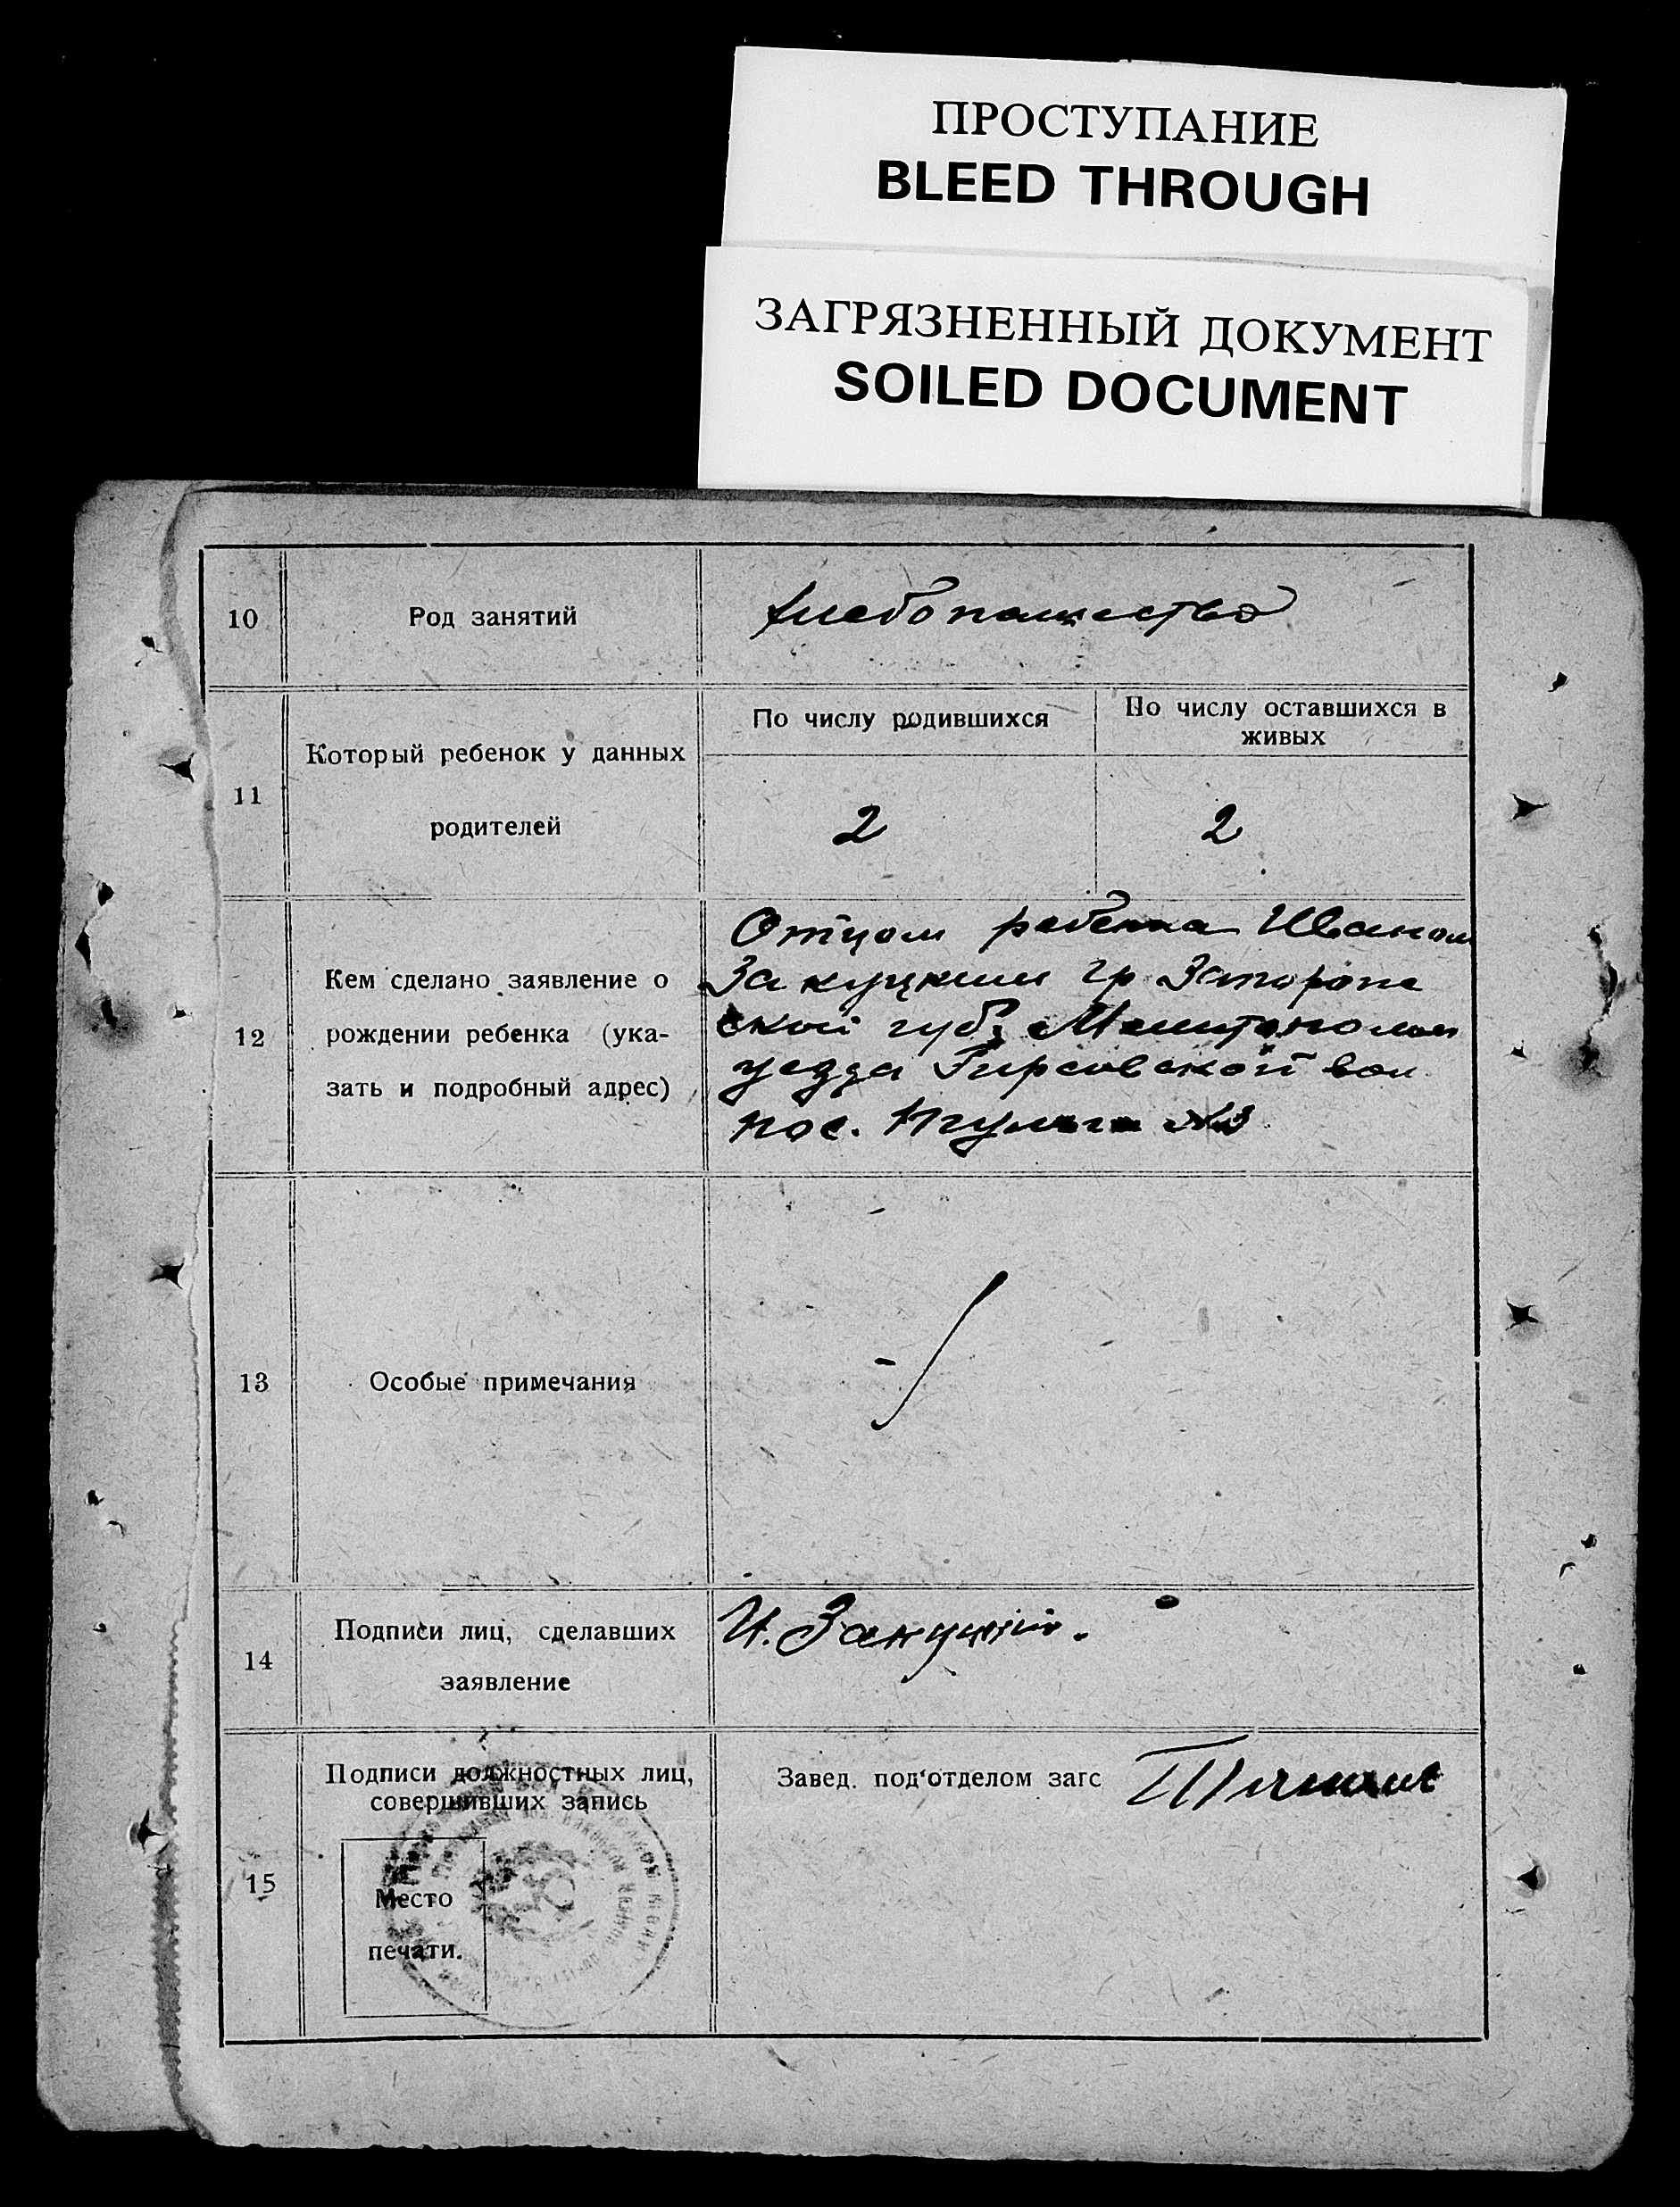 ПРОСТУПАНИЕ
BLEED THROUGH
ЗАГРЯЗНЕННЫЙ ДОКУМЕНТ
SOILED DOCUMENT
10
Род занятий
хлебопашество
11
Который ребенок у данных
родителей
По числу родившихся
По числу оставшихся в
живых
2
2
12
Кем сделано заявление о
рождении ребенка (ука-
зать и подробный адрес)
Отцом ребенка Иваном
Закуцким гр Запорож
ской губ. Мелитополь
уезда Гирсовской вол
пос. №3
13
Особые примечания
14
Подписи лиц, сделавших
заявление
И. Закуцкий.
15
Подписи должностных лиц,
совершивших запись
Место
печати.
Завед. под'отделом загс